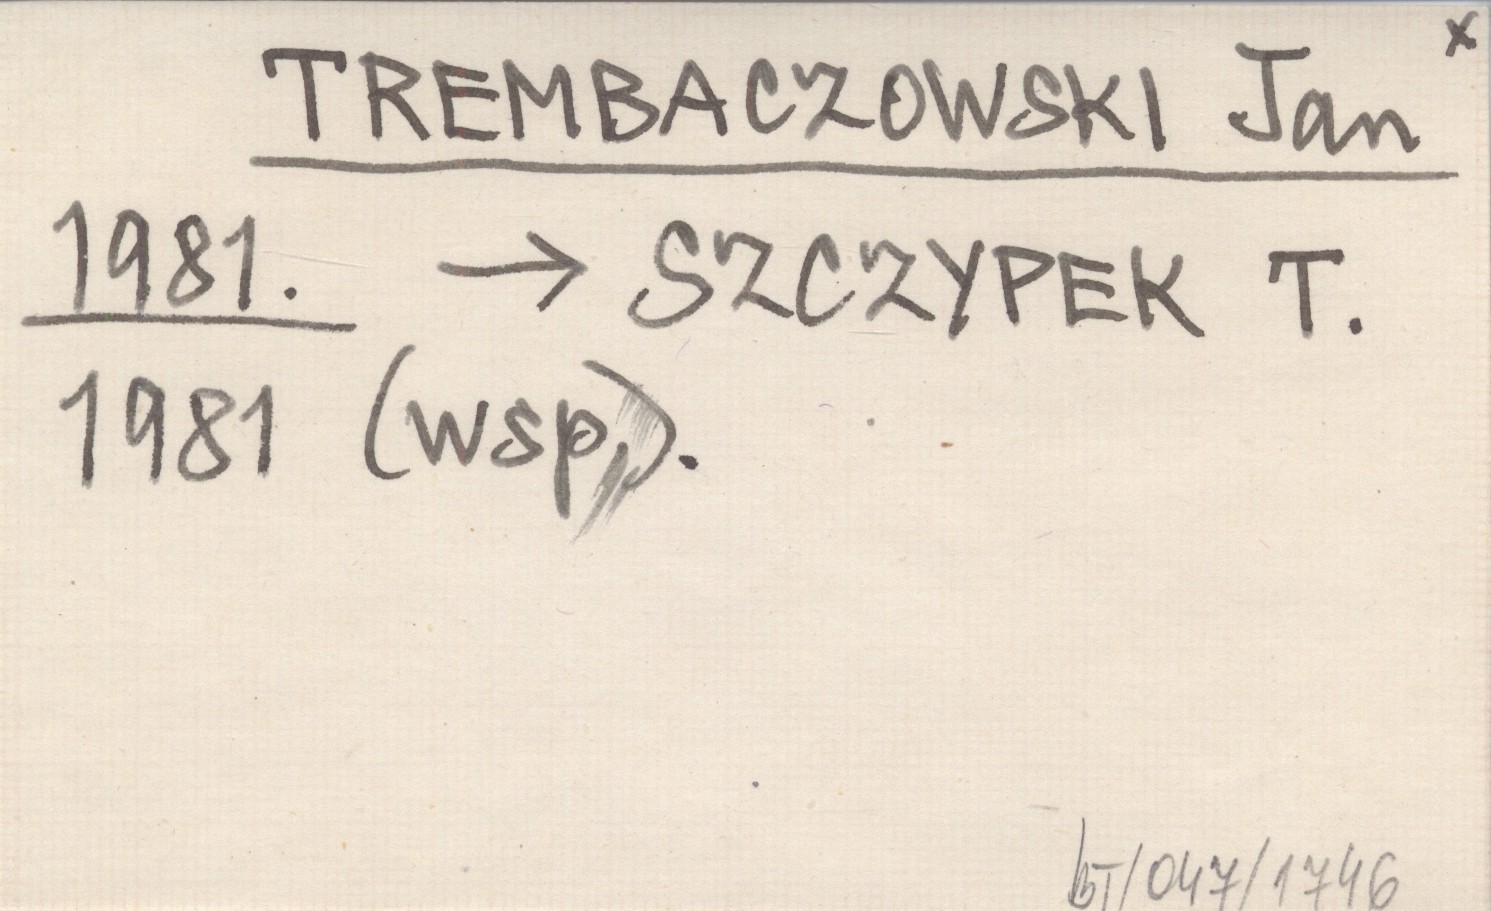 x
TREMBACZOWSKI Jan
1981. → SZCZYPEK T.
1981 (wsp.).
bT/047/1746